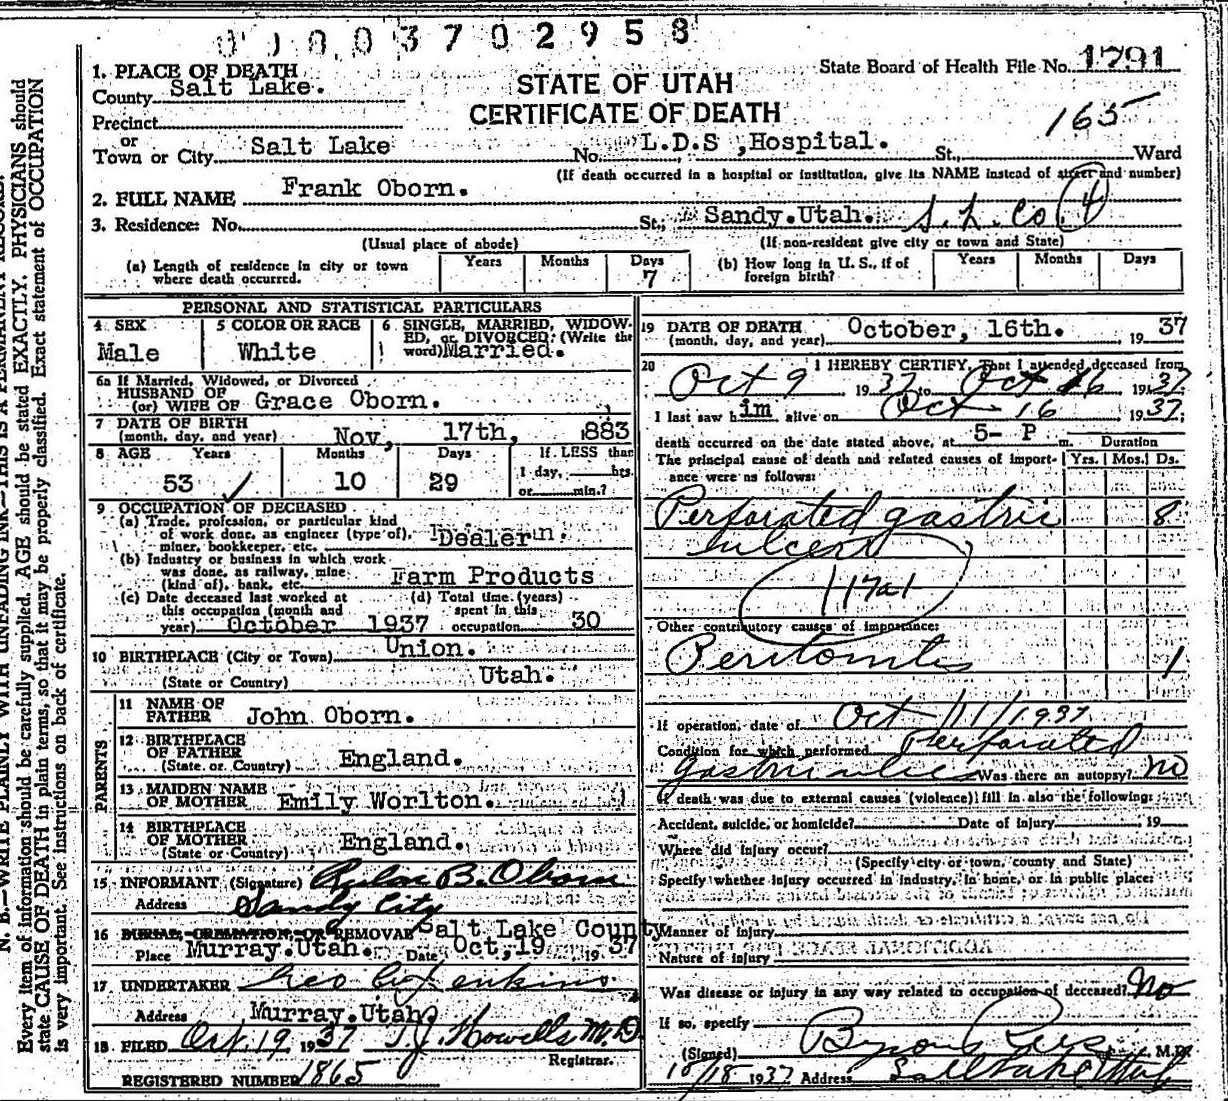 0 0 0 3 7 0 2 9 5 8
State Board of Health File No. 1791
1. PLACE OF DEATH
County Salt Lake.
STATE OF UTAH
CERTIFICATE OF DEATH
165
Precinct
or
Town or City Salt Lake No. L.D.S ,Hospital. St., Ward
(If death occurred in a hospital or institution, give its NAME instead of street and number)
2. FULL NAME Frank Oborn.
3. Residence: No. St., Sandy.Utah. S. L. Co. 4
(Usual place of abode) (If non-resident give city or town and State)
(a) Length of residence in city or town where death occurred. Years Months Days 7
(b) How long in U. S., if of foreign birth? Years Months Days
PERSONAL AND STATISTICAL PARTICULARS
4 SEX Male
5 COLOR OR RACE White
6 SINGLE, MARRIED, WIDOWED, or DIVORCED: (Write the word) Married.
6a If Married, Widowed, or Divorced
HUSBAND OF
(or) WIFE OF Grace Oborn.
7 DATE OF BIRTH
(month, day, and year) Nov, 17th, 883
8 AGE Years 53 Months 10 Days 29 If LESS than 1 day, hrs. or min.?
9 OCCUPATION OF DECEASED
(a) Trade, profession, or particular kind of work done, as engineer (type of), miner, bookkeeper, etc. Dealer
(b) Industry or business in which work was done, as railway, mine (kind of), bank, etc. Farm Products
(c) Date deceased last worked at this occupation (month and year) October 1937
(d) Total time (years) spent in this occupation 30
10 BIRTHPLACE (City or Town) Union.
(State or Country) Utah.
PARENTS
11 NAME OF FATHER John Oborn.
12 BIRTHPLACE OF FATHER
(State or Country) England.
13 MAIDEN NAME OF MOTHER Emily Worlton.
14 BIRTHPLACE OF MOTHER
(State or Country) England.
15 INFORMANT (Signature) B. Oborn
Address Sandy City
16 BURIAL, CREMATION, OR REMOVAL Salt Lake County
Place Murray.Utah. Date Oct,19 19 37
17 UNDERTAKER Geo Jenkins
Address Murray.Utah
18 FILED Oct. 19 1937 T. J. Howells M.D
Registrar.
REGISTERED NUMBER 1865
19 DATE OF DEATH
(month, day, and year) October, 16th. 19 37
20 I HEREBY CERTIFY, That I attended deceased from
Oct 9 1937 to Oct 16 1937
I last saw him alive on Oct 16 1937;
death occurred on the date stated above, at 5- P m. Duration
The principal cause of death and related causes of importance were as follows: Yrs. Mos. Ds.
Perforated gastric 8
ulcer
117a1
Other contributory causes of importance:
Peritonitis 1
If operation, date of Oct 11/1937
Condition for which performed Perforated
gastric ulcer Was there an autopsy? No
If death was due to external causes (violence) fill in also the following:
Accident, suicide, or homicide? Date of injury 19
Where did injury occur?
(Specify city or town, county and State)
Specify whether injury occurred in industry, in home, or in public place:
Manner of injury
Nature of injury
Was disease or injury in any way related to occupation of deceased? No
If so, specify
(Signed) Byron Rees M.D.
10/18 1937 Address Salt Lake Utah
N. B.—WRITE PLAINLY WITH UNFADING INK—THIS IS A PERMANENT RECORD.
Every item of information should be carefully supplied. AGE should be stated EXACTLY. PHYSICIANS should
state CAUSE OF DEATH in plain terms, so that it may be properly classified. Exact statement of OCCUPATION
is very important. See instructions on back of certificate.